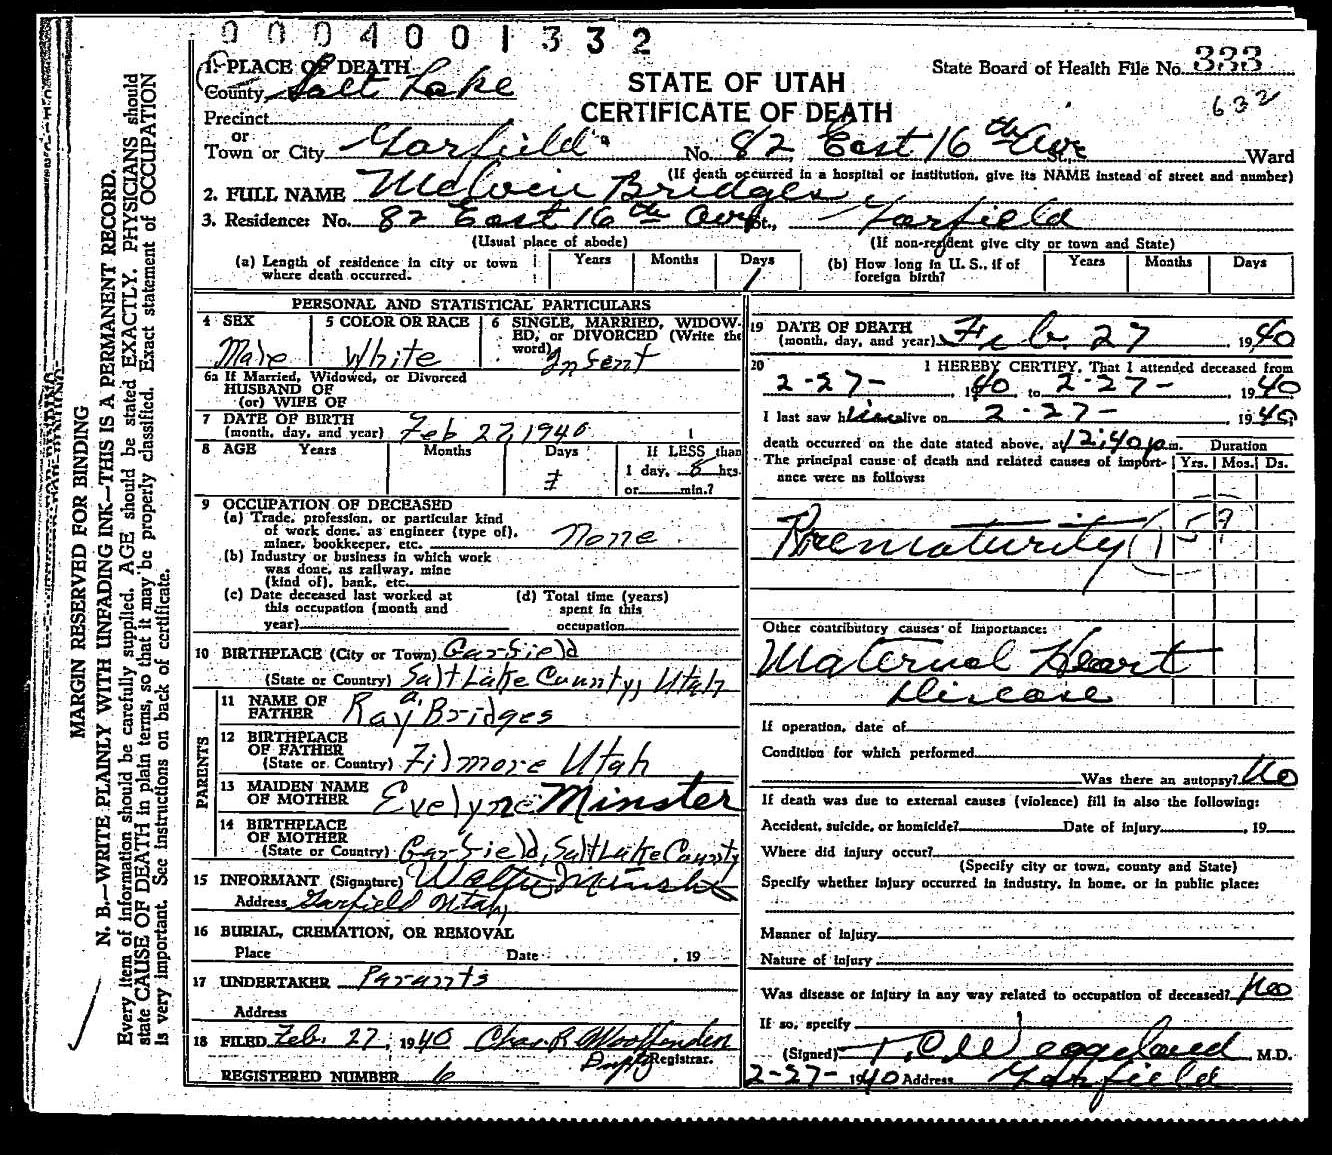 0004001332
1. PLACE OF DEATH
County Salt Lake
STATE OF UTAH
CERTIFICATE OF DEATH
State Board of Health File No. 333
632
Precinct
or
Town or City Garfield No. 82 East 16th Ave St., Ward
(If death occurred in a hospital or institution, give its NAME instead of street and number)
2. FULL NAME Melvin Bridges
3. Residence: No. 82 East 16th Ave St., Garfield
(Usual place of abode) (If non-resident give city or town and State)
(a) Length of residence in city or town where death occurred. Years Months Days 1
(b) How long in U. S., if of foreign birth? Years Months Days
MARGIN RESERVED FOR BINDING
N. B.—WRITE PLAINLY WITH UNFADING INK—THIS IS A PERMANENT RECORD.
Every item of information should be carefully supplied. AGE should be stated EXACTLY. PHYSICIANS should
state CAUSE OF DEATH in plain terms, so that it may be properly classified. Exact statement of OCCUPATION
is very important. See instructions on back of certificate.
PERSONAL AND STATISTICAL PARTICULARS
4 SEX Male
5 COLOR OR RACE White
6 SINGLE, MARRIED, WIDOWED, or DIVORCED (Write the word) Infent
6a If Married, Widowed, or Divorced
HUSBAND OF
(or) WIFE OF
7 DATE OF BIRTH
(month, day, and year) Feb 27, 1940
8 AGE Years Months Days If LESS than
1 day, hrs.
or min.?
9 OCCUPATION OF DECEASED
(a) Trade, profession, or particular kind
of work done, as engineer (type of),
miner, bookkeeper, etc. None
(b) Industry or business in which work
was done, as railway, mine
(kind of), bank, etc.
(c) Date deceased last worked at
this occupation (month and
year)
(d) Total time (years)
spent in this
occupation
10 BIRTHPLACE (City or Town) Garfield
(State or Country) Salt Lake County, Utah
PARENTS
11 NAME OF
FATHER Ray A. Bridges
12 BIRTHPLACE
OF FATHER
(State or Country) Filmore Utah
13 MAIDEN NAME
OF MOTHER Evelyne Minster
14 BIRTHPLACE
OF MOTHER
(State or Country) Garfield, Salt Lake County
15 INFORMANT (Signature)
Address Garfield Utah
16 BURIAL, CREMATION, OR REMOVAL
Place Date , 19
17 UNDERTAKER Parants
Address
18 FILED Feb. 27, 1940 Chas. R. Wooffenden
Dupty Registrar.
REGISTERED NUMBER 6
19 DATE OF DEATH
(month, day, and year) Feb. 27, 1940
20 I HEREBY CERTIFY, That I attended deceased from
2-27-, 1940 to 2-27-, 1940
I last saw him alive on 2-27- 1940,
death occurred on the date stated above, at 12:40 p.m. Duration
The principal cause of death and related causes of importance were as follows: Yrs. Mos. Ds.
Prematurity
Other contributory causes of importance:
Maternal Heart
Disease
If operation, date of
Condition for which performed
Was there an autopsy? No
If death was due to external causes (violence) fill in also the following:
Accident, suicide, or homicide? Date of injury , 19
Where did injury occur?
(Specify city or town, county and State)
Specify whether injury occurred in industry, in home, or in public place:
Manner of Injury
Nature of injury
Was disease or injury in any way related to occupation of deceased? No
If so, specify
(Signed) M.D.
2-27- 1940 Address Garfield